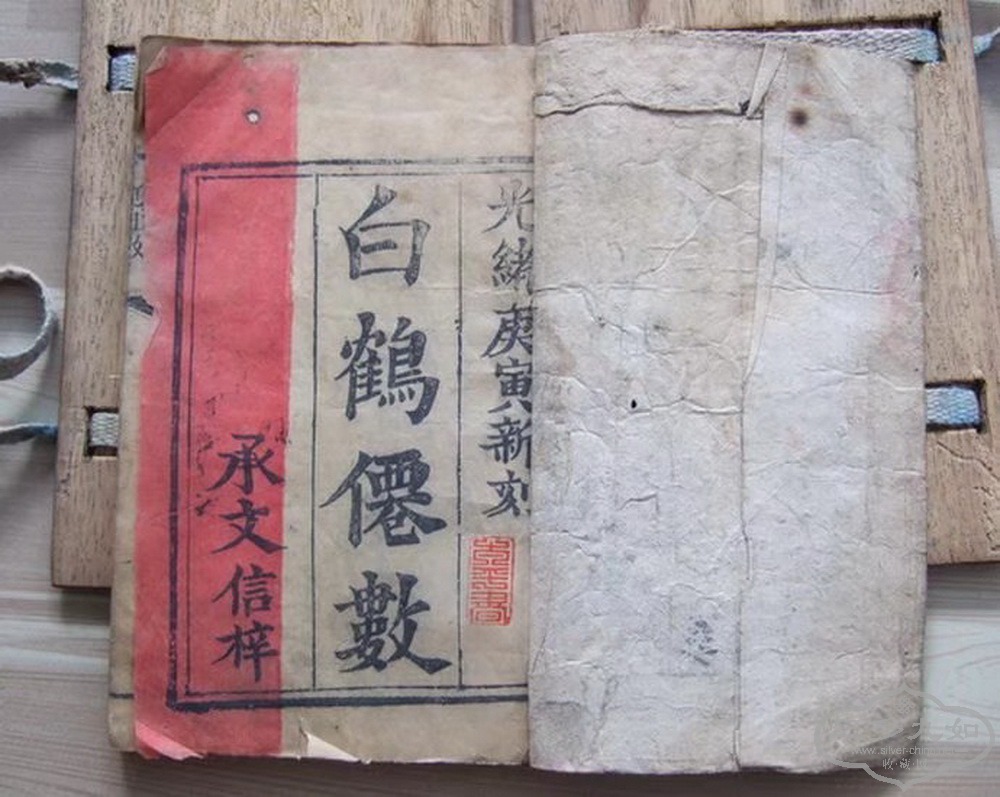 光緒庚寅新刻
白鶴僊數
承文信梓
www.silver-ch
收·藏